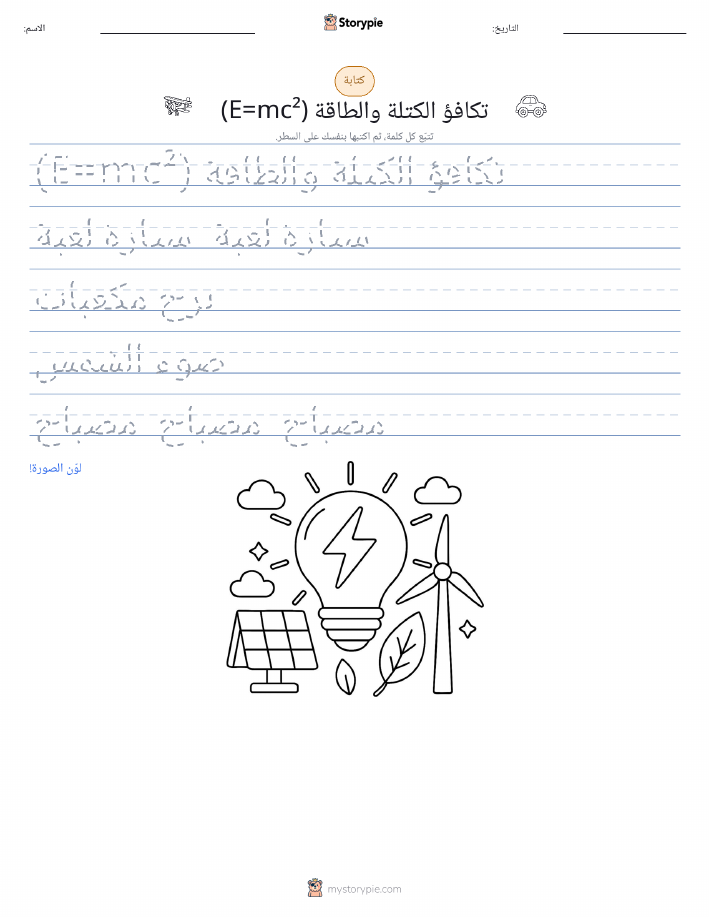 Storypie
الاسم: التاريخ:
كتابة
تكافؤ الكتلة والطاقة (E=mc²)
تتبّع كل كلمة، ثم اكتبها بنفسك على السطر.
تكافؤ الكتلة والطاقة (E=mc²)
سيارة لعبة سيارة لعبة
برج مكعبات
ضوء الشمس
مصباح مصباح مصباح
لوّن الصورة!
mystorypie.com